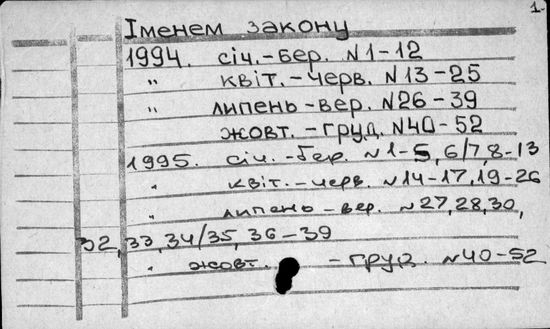 1.
Іменем закону
1994. січ.-бер. N1-12
" квіт.-черв. N13-25
" липень-вер. N26-39
жовт.-груд. N40-52
1995. січ.-бер. N1-5, 6/7, 8-13
" квіт.-черв. N14-17, 19-26
" липень-вер. N27, 28, 30,
32, 33, 34/35, 36-39
" жовт. -груд. N40-52